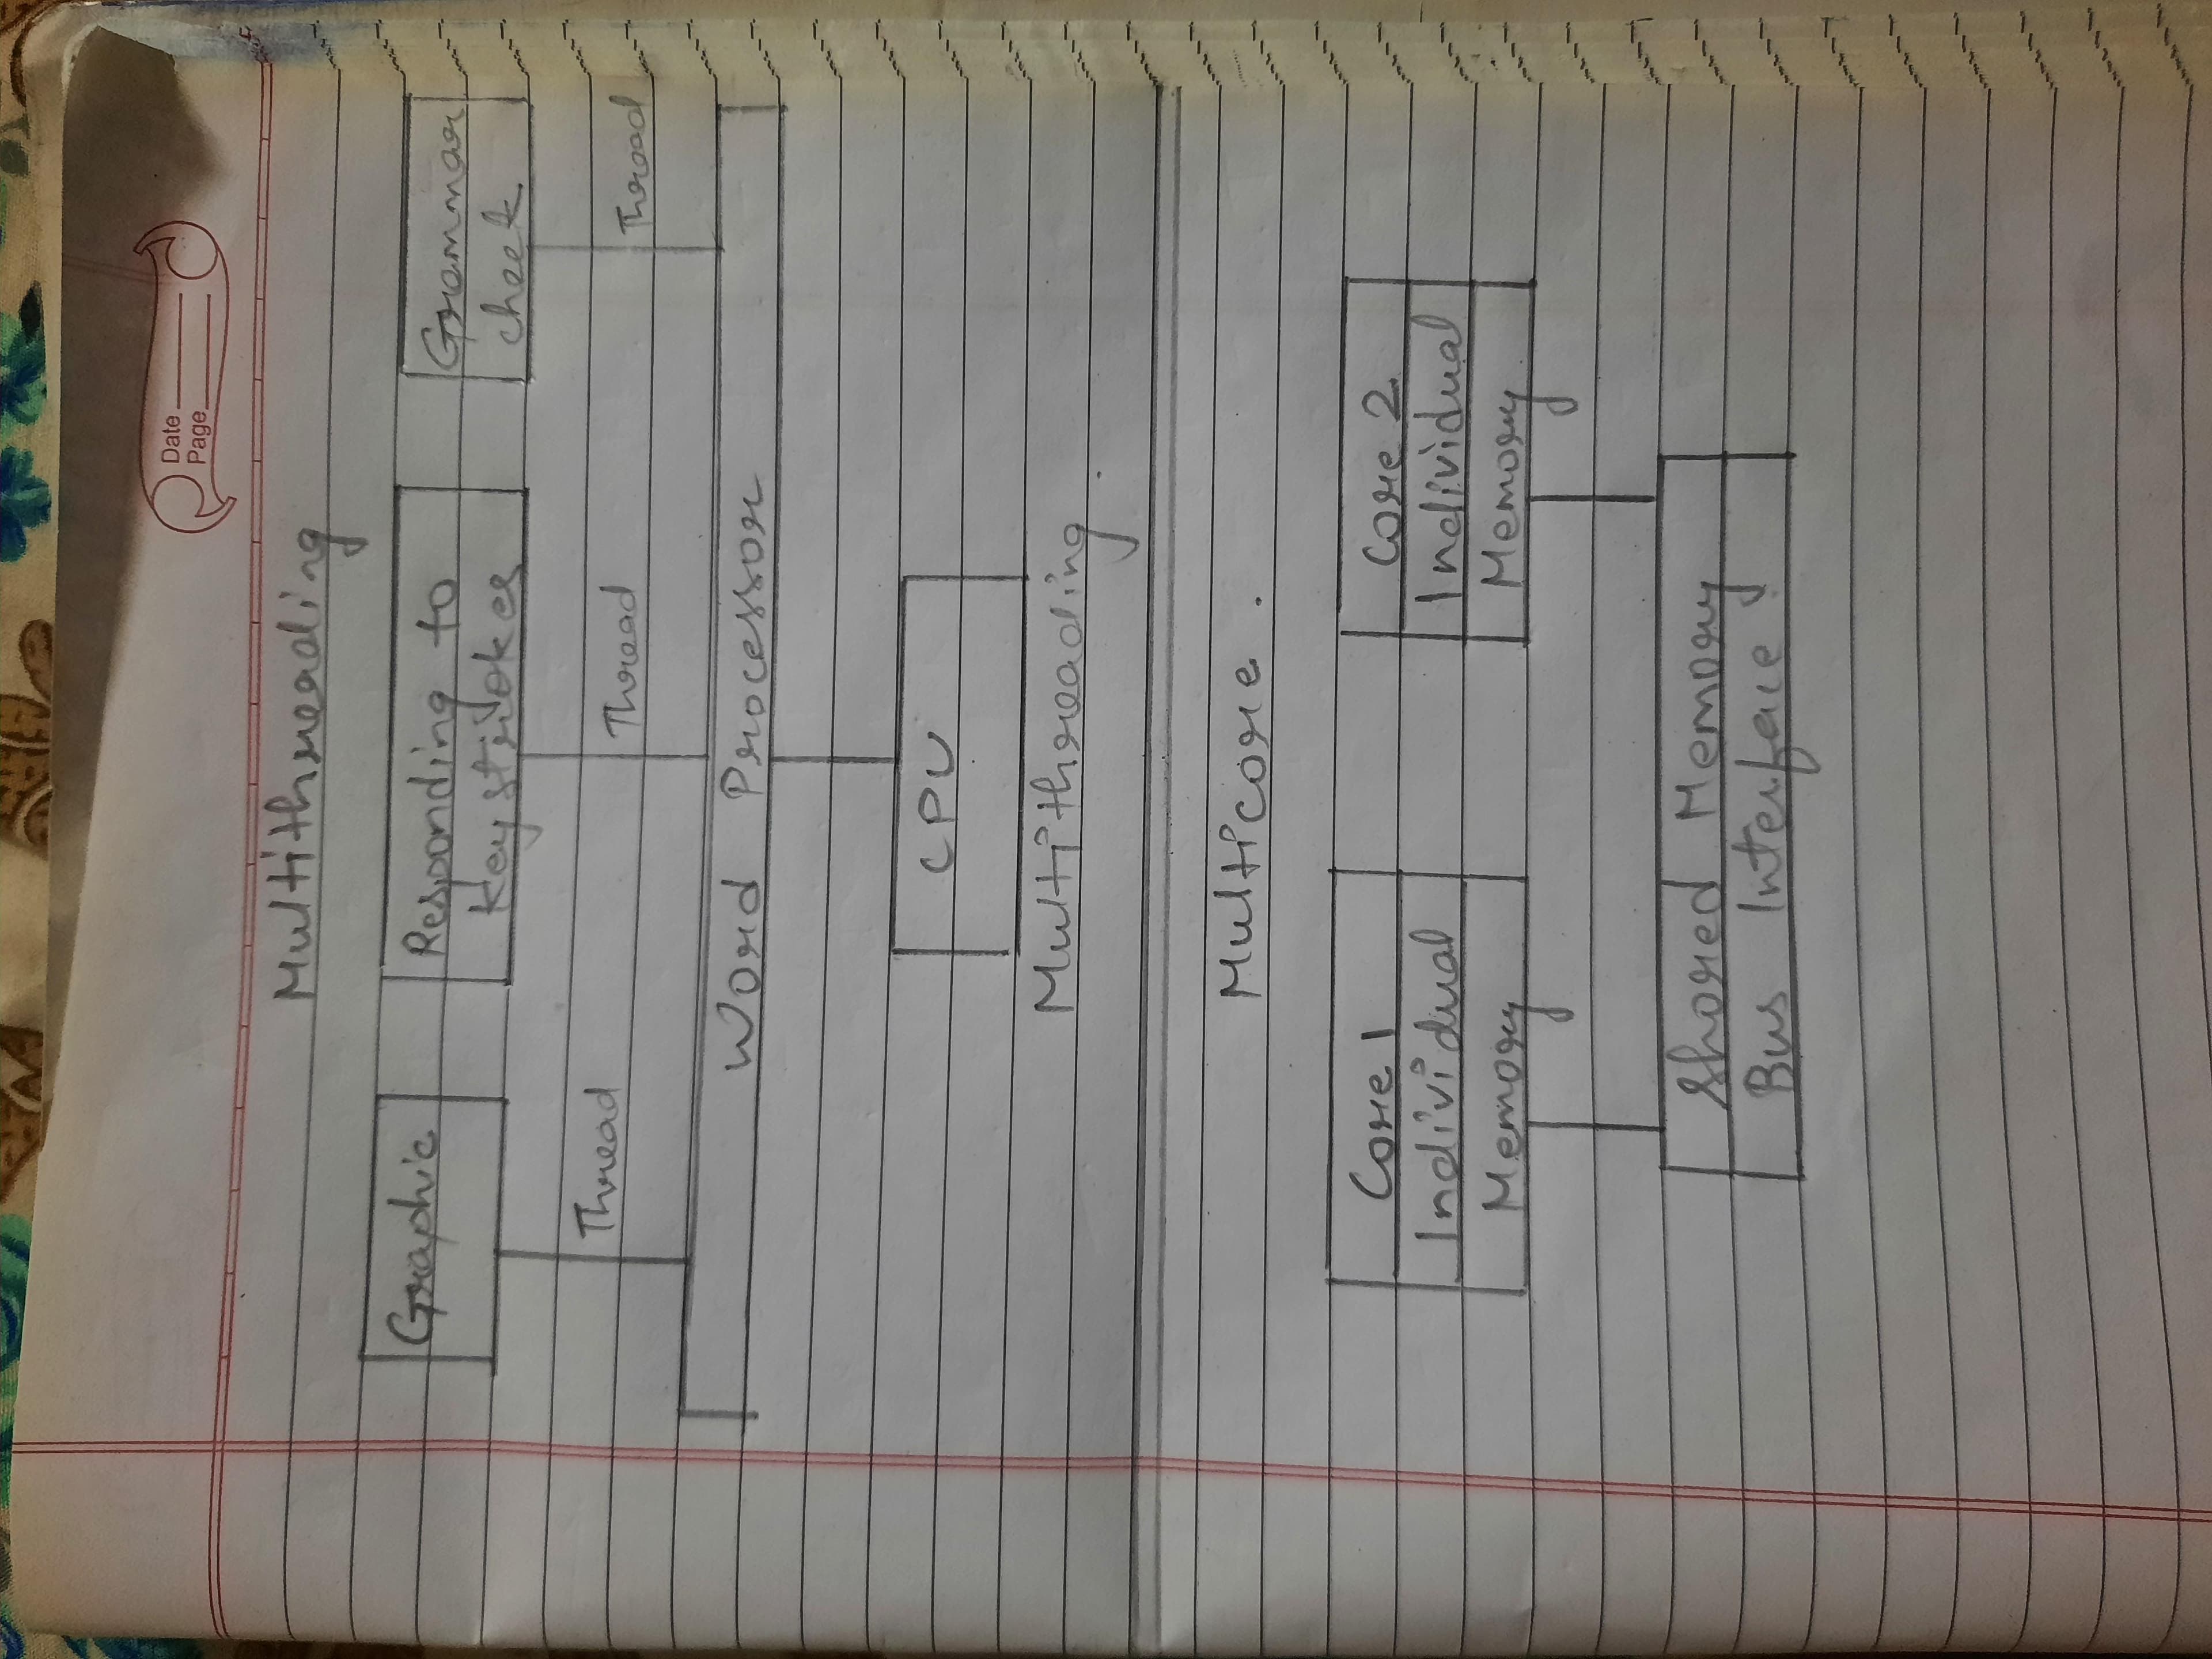 Date
Page
Multithreading
Graphic
Responding to
keystrokes
Grammar
check
Thread
Thread
Thread
Word Processor
CPU
Multithreading
Multicore.
Core 1
Individual
Memory
Core 2
Individual
Memory
Shared Memory
Bus Interface